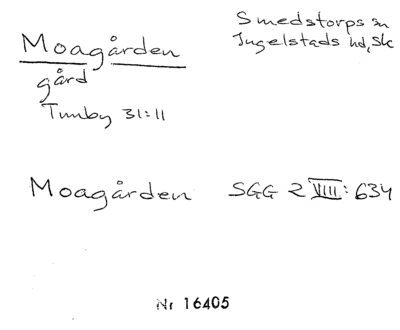 Moagården
gård
Tumby 31:11
Smedstorps sn
Ingelstads hd, Sk
Moagården SGG 2 VIII: 634
Nr 16405